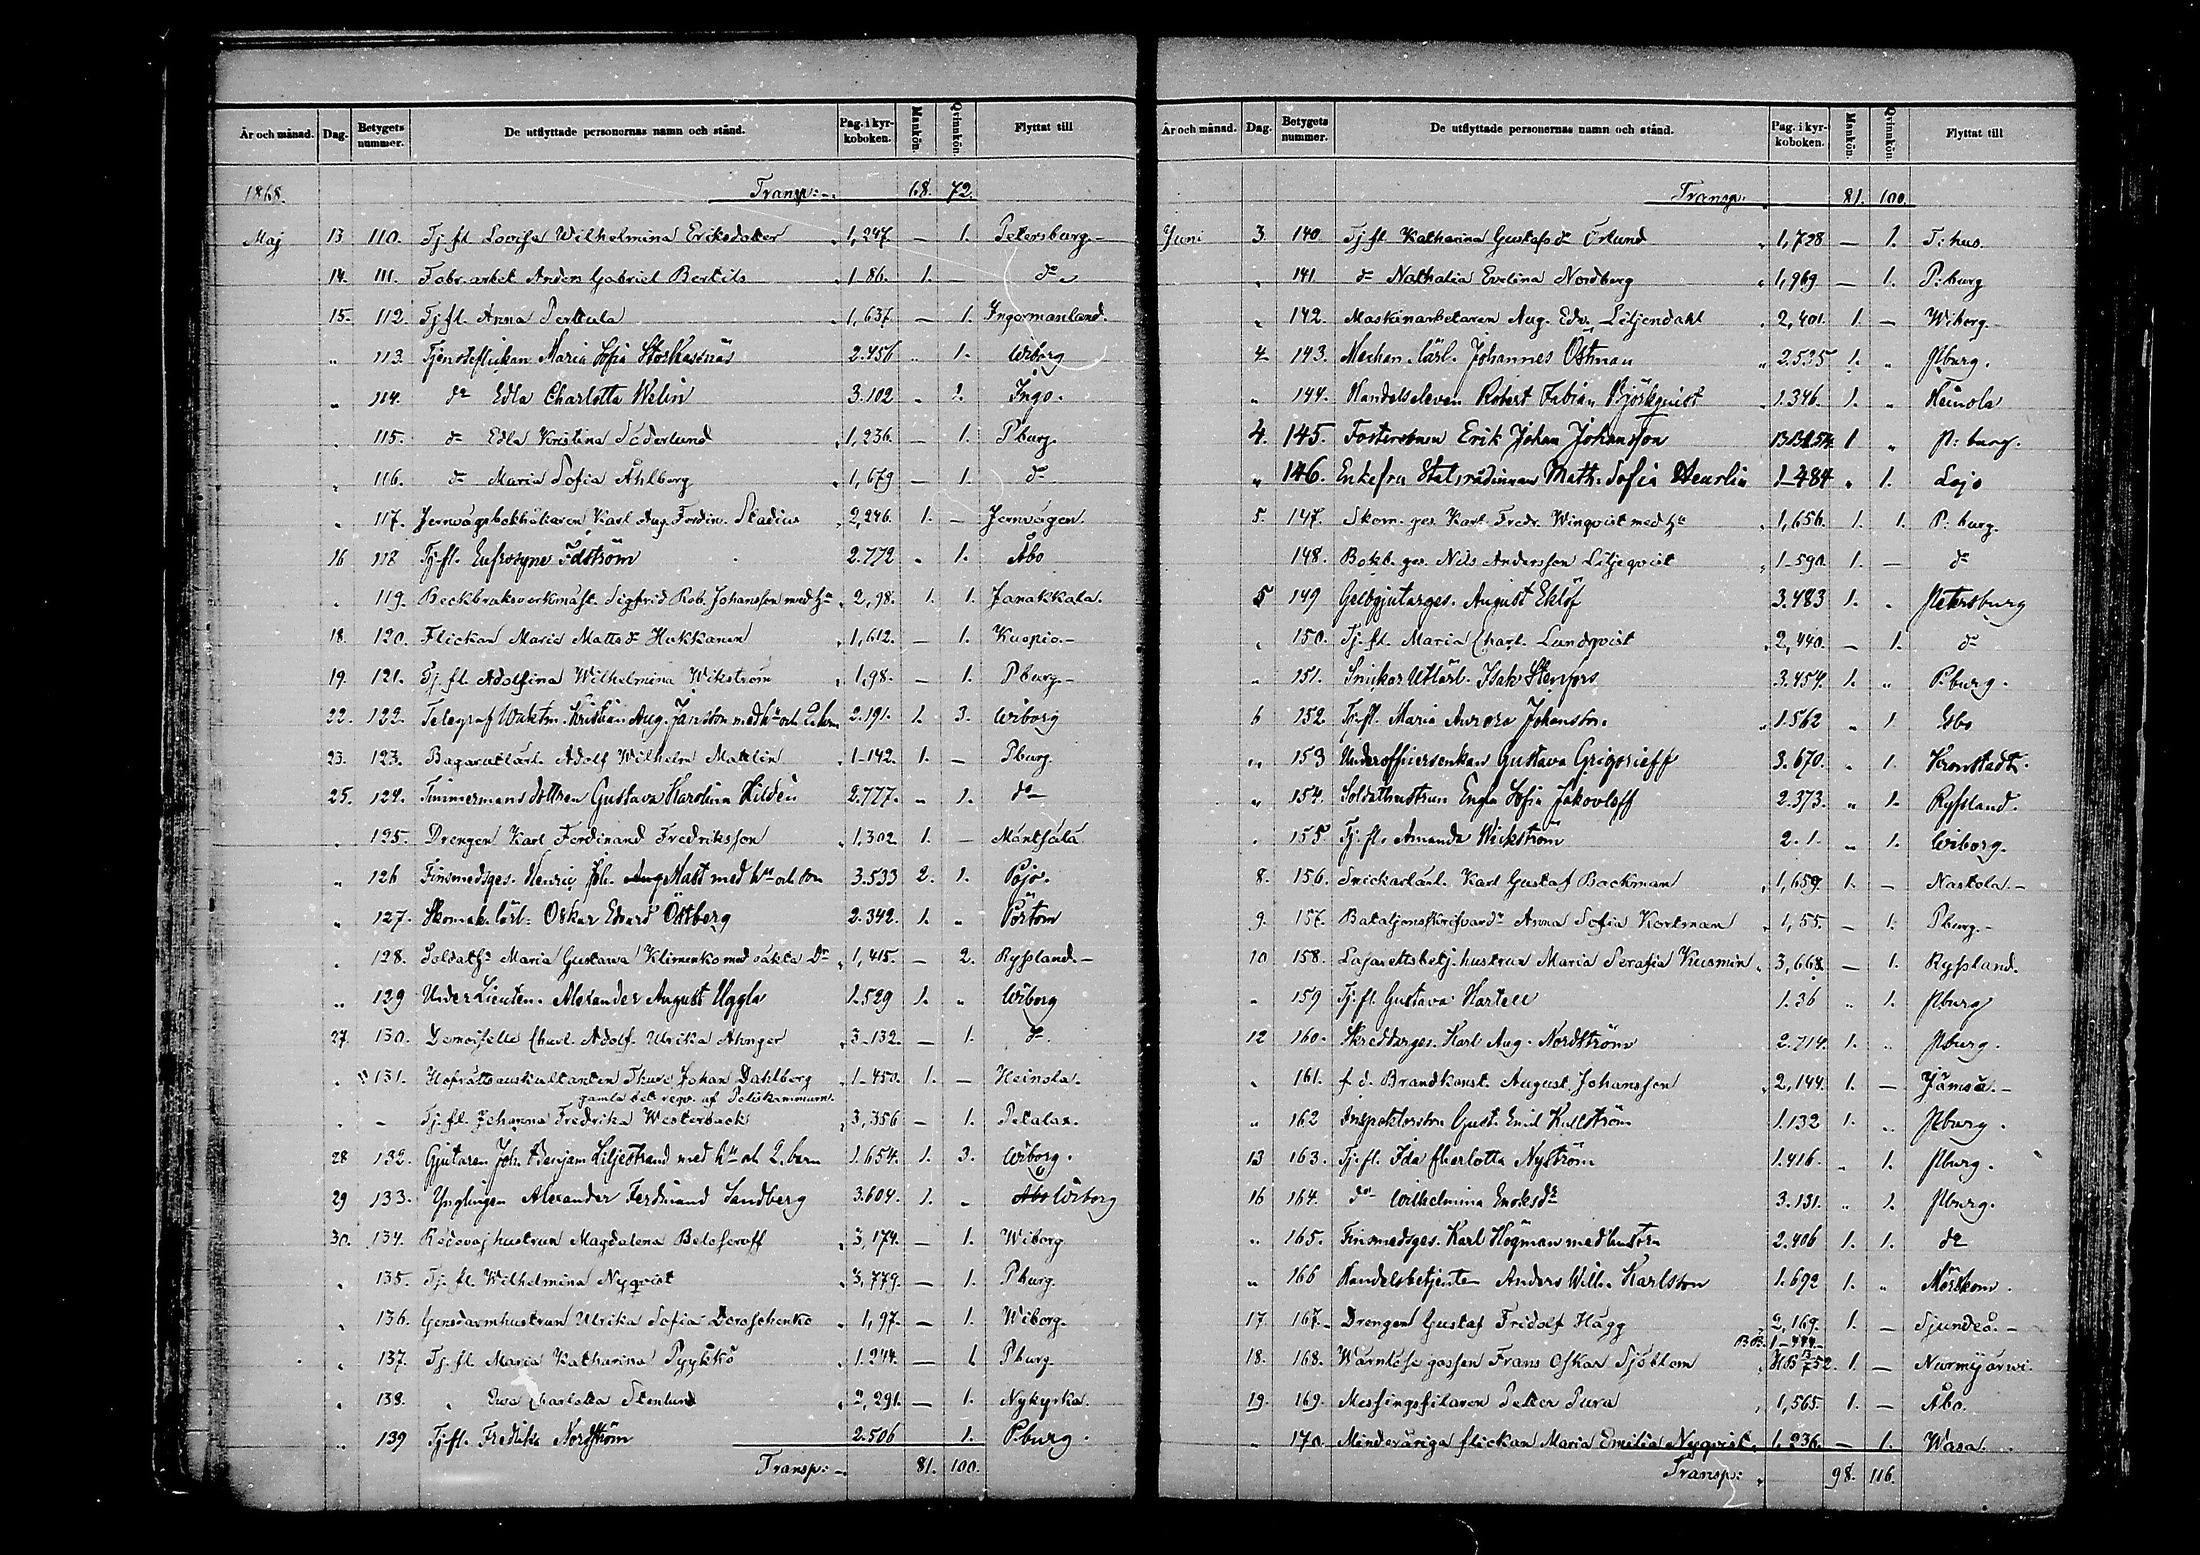 År och månad. Dag. Betygets nummer. De utflyttade personernas namn och stånd. Pag. i kyrkoboken. Mankön. Qvinnkön. Flyttat till
1868. Transp:-. 68. 72.
Maj 13 110. Tj. fl. Lovisa Wilhelmina Eriksdotter 1,247. — 1. Petersburg.-
14. 111. Fabr. arbet. Anders Gabriel Bertils 1.86. 1. — do
15. 112. Tj. fl. Anna Perttula 1,637. — 1. Ingermanland.
" 113. Tjensteflickan Maria Sofia Storkasnäs 2.456 " 1. Wiborg
" 114. do Edla Charlotta Welin 3.102 " 1. Ingo.
" 115. do Edla Kristina Söderlund 1,236. — 1. Pburg.
" 116. do Maria Sofia Åhlberg 1,679 — 1. do
" 117. Jernvägsbokhållaren Karl Aug. Ferdin. Stadius 2,246. 1. — Jernvägen.
16 118 Tj. fl. Eufrosyne Edström 2.772 " 1. Åbo
" 119. Beckbruksverkmäst. Sigfrid Rob. Johansson med hu 2,98. 1. 1. Janakkala.
18. 120. Flickan Maria Mattsdr Hakkanen 1,612. — 1. Kuopio.-
19. 121. Tj. fl. Adolfina Wilhelmina Wikström 1,98. — 1. Pburg.-
22. 122. Telegraf Waktm. Kristian Aug. Jansson med hu och 2. barn 2.191. 1. 3. Wiborg
23. 123. Bagarelärl. Adolf Wilhelm Matlin 1-142. 1. — Pburg.
25. 124. Timmermans dottren Gustava Karolina Hildén 2.777. " 1. do
" 125. Drengen Karl Ferdinand Fredriksson 1,302 1. — Mäntsälä.
" 126 Finsmedsges. Henric Joh. Matt med hu och son 3.533 2. 1. Pojo.
" 127. Skomak. lärl. Oskar Edvard Östberg 2.342. 1. " Pörtom
" 128. Soldath. Maria Gustawa Klimenko med oäkta Dr 1,415. — 2. Ryssland.-
" 129 Under Lieuten. Alexander August Uggla 1.529 1. " Wiborg
27. 130. Demoiselle Charl. Adolf. Ulrika Ahnger 3-132. — 1. do
" 131. Hofrättsauskultanten Thure Johan Dahlberg 1-450. 1. — Heinola.
gamla bet. reqv. af Poliskammarn.
" - Tj. fl. Johanna Fredrika Westerback 3,356 — 1. Petalax.
28 132. Gjutaren Joh. Benjam. Liljestrand med hu och 2. barn 1.654. 1. 3. Wiborg.
29 133. Ynglingen Alexander Ferdinand Sandberg 3.604. 1. " Åbo Wiborg
30. 134. Redovajhustrun Magdalena Beloseroff 3,174. — 1. Wiborg
" 135. Tj. fl. Wilhelmina Nyqvist 3,779. — 1. Pburg.
" 136. Gensdarmhustrun Ulrika Sofia Doroschenko 1,97. — 1. Wiborg.
" 137. Tj. fl. Maria Katharina Pyykkö 1.244. — 1 Pburg.
" 138. " Ewa Charlotta Stenlund 2,291. — 1. Nykyrka.
" 139 Tj. fl. Fredrika Nordström 2.506 1. P.burg.
Transp:-. 81. 100.
År och månad. Dag. Betygets nummer. De utflyttade personernas namn och stånd. Pag. i kyrkoboken. Mankön. Qvinnkön. Flyttat till
Transp: 81. 100.
Juni 3. 140 Tj. fl. Katharina Gustafsdr Örlund 1,728 — 1. T:hus.
" 141 do Nathalia Evelina Nordberg 1,969 — 1. P:burg
" 142. Maskinarbetaren Aug. Edv. Liljendahl 2,401. 1. — Wiborg.
4 143. Mechan. lärl. Johannes Östman 2.535 1. " Pburg.
" 144. Handelseleven Robert Fabian Björkqvist 1.346. 1. " Heinola
4. 145. Fostersonen Erik Johan Johansson 1 " P:burg.
" 146. Enkefru Statsrådinnan Math. Sofia Heurlin 1-484 " 1. Lojo
5. 147. Skom. ges. Karl Fredr. Winqvist med hu 1,656. 1. 1. P:burg.
148. Bokb. ges. Nils Andersson Liljeqvist 1-590. 1. — do
5 149 Gelbgjutarges. August Eklöf 3.483 1. " Petersburg
" 150. Tj. fl. Maria Charl. Lundqvist 2,440. — 1. do
" 151. Snickar Utlärl. Isak Stenfors 3.454. 1. " P.burg.
6 152. Tj. fl. Maria Aurora Johansson. 1.562 " 1. Esbo
" 153 Underofficersenkan Gustava Grigorieff 3.670. " 1. Kronstadt.
" 154. Soldathustrun Engla Sofia Jakovleff 2.373. " 1. Ryssland.
" 155 Tj. fl. Amanda Wickström 2.1. " 1. Wiborg.
8. 156. Snickarlärl. Karl Gustaf Backman 1,659. 1. — Nastola.-
9. 157. Bataljonsskrifvardr Anna Sofia Kortman 1,55. — 1. Pburg.-
10 158. Lasarettsbetj. hustrun Maria Serafia Kusmin 3,668. — 1. Ryssland.
" 159 Tj. fl. Gustava Hartell 1.36 " 1. Pburg
12 160. Skreddarges. Karl Aug. Nordström 2.714. 1. " Pburg.
" 161. f. d. Brandkonst. August Johansson 2,144. 1. — Jämsä.-
" 162 Inspektorson Gust. Emil Kullström 1.132 1. " Pburg.
13 163. Tj. fl. Ida Charlotta Nyström 1.416. " 1. Pburg.
16 164. do Wilhelmina Enoksdr 3.131. " 1. Pburg.
" 165. Finsmedsges. Karl Högman med hustru 2.406 1. 1. do
" 166 Handelsbetjenten Anders Wilh. Karlsson 1.692 1. " Mörskom.
17. 167. Drengen Gustaf Fridolf Hägg 2,169. 1. — Sjundeå.-
18. 168. Wärnlöse gossen Frans Oskar Sjöblom 1. — Nurmijärvi.
19. 169. Messingsfilaren Petter Pura 1,565. 1. — Åbo.
" 170. Minderåriga flickan Maria Emilia Nyqvist. 1.236. — 1. Wasa.
Transp: 98. 116.